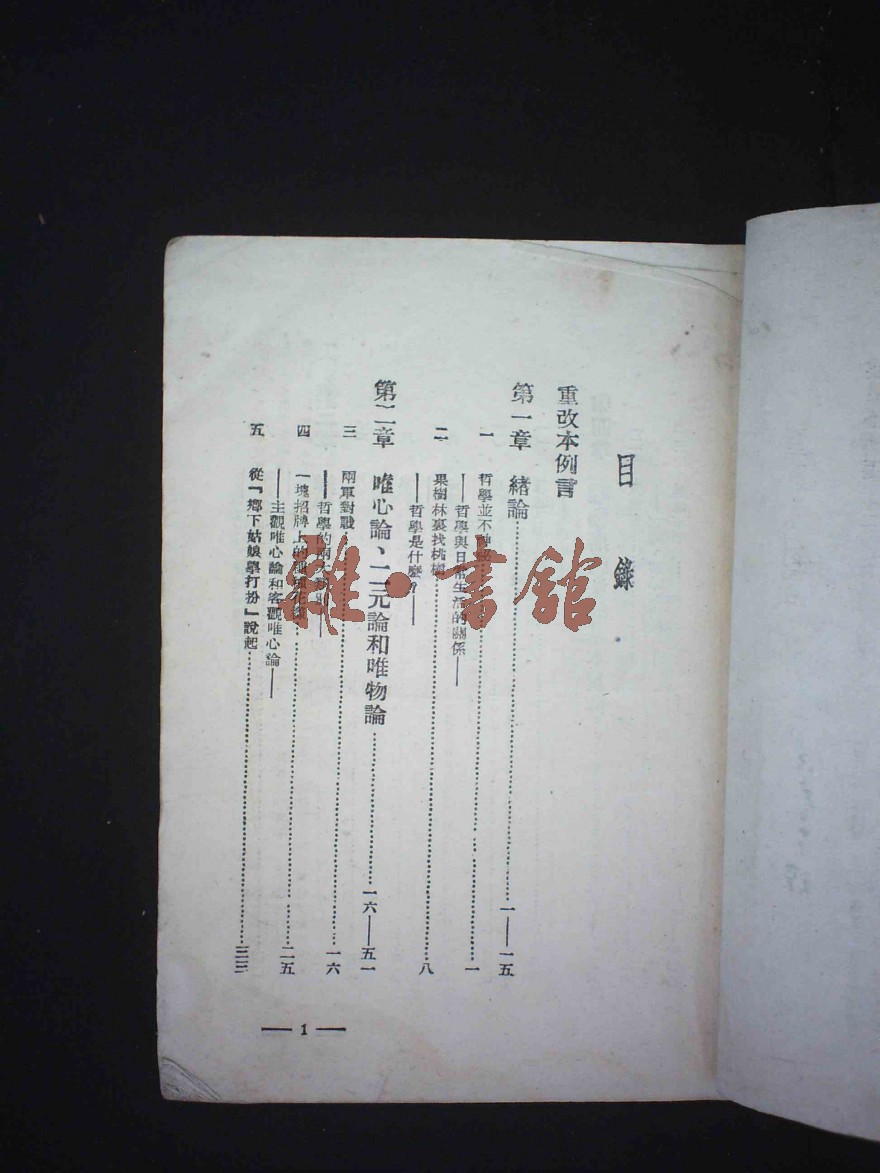 目錄
重改本例言
第一章 緒論……一——一五
一 哲學並不神……一
——哲學與日常生活的關係——
二 果樹林裏找桃樹……八
——哲學是什麼?——
第二章 唯心論、二元論和唯物論……一六——五一
三 兩軍對戰……一六
——哲學的兩大
四 一塊招牌上的……二五
——主觀唯心論和客觀唯心論——
五 從『鄉下姑娘學打扮』說起……三三
—— 1 ——
雜·書館